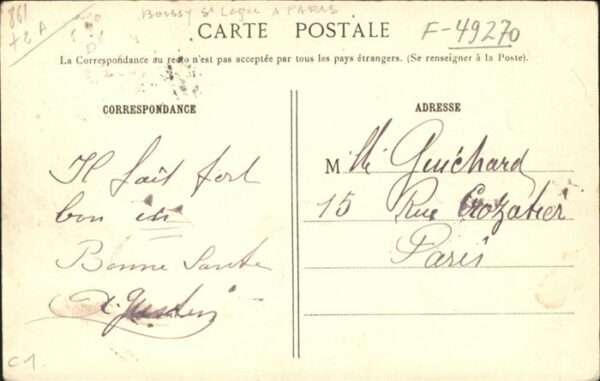 861
+2 A
BOISSY St Leger A PARIS
F-49270
CARTE POSTALE
La Correspondance au recto n'est pas acceptée par tous les pays étrangers. (Se renseigner à la Poste).
CORRESPONDANCE
Il fait fort
bon ici
Bonne Sante
ADRESSE
M lle Guichard
15 Rue Crozatier
Paris
C1.